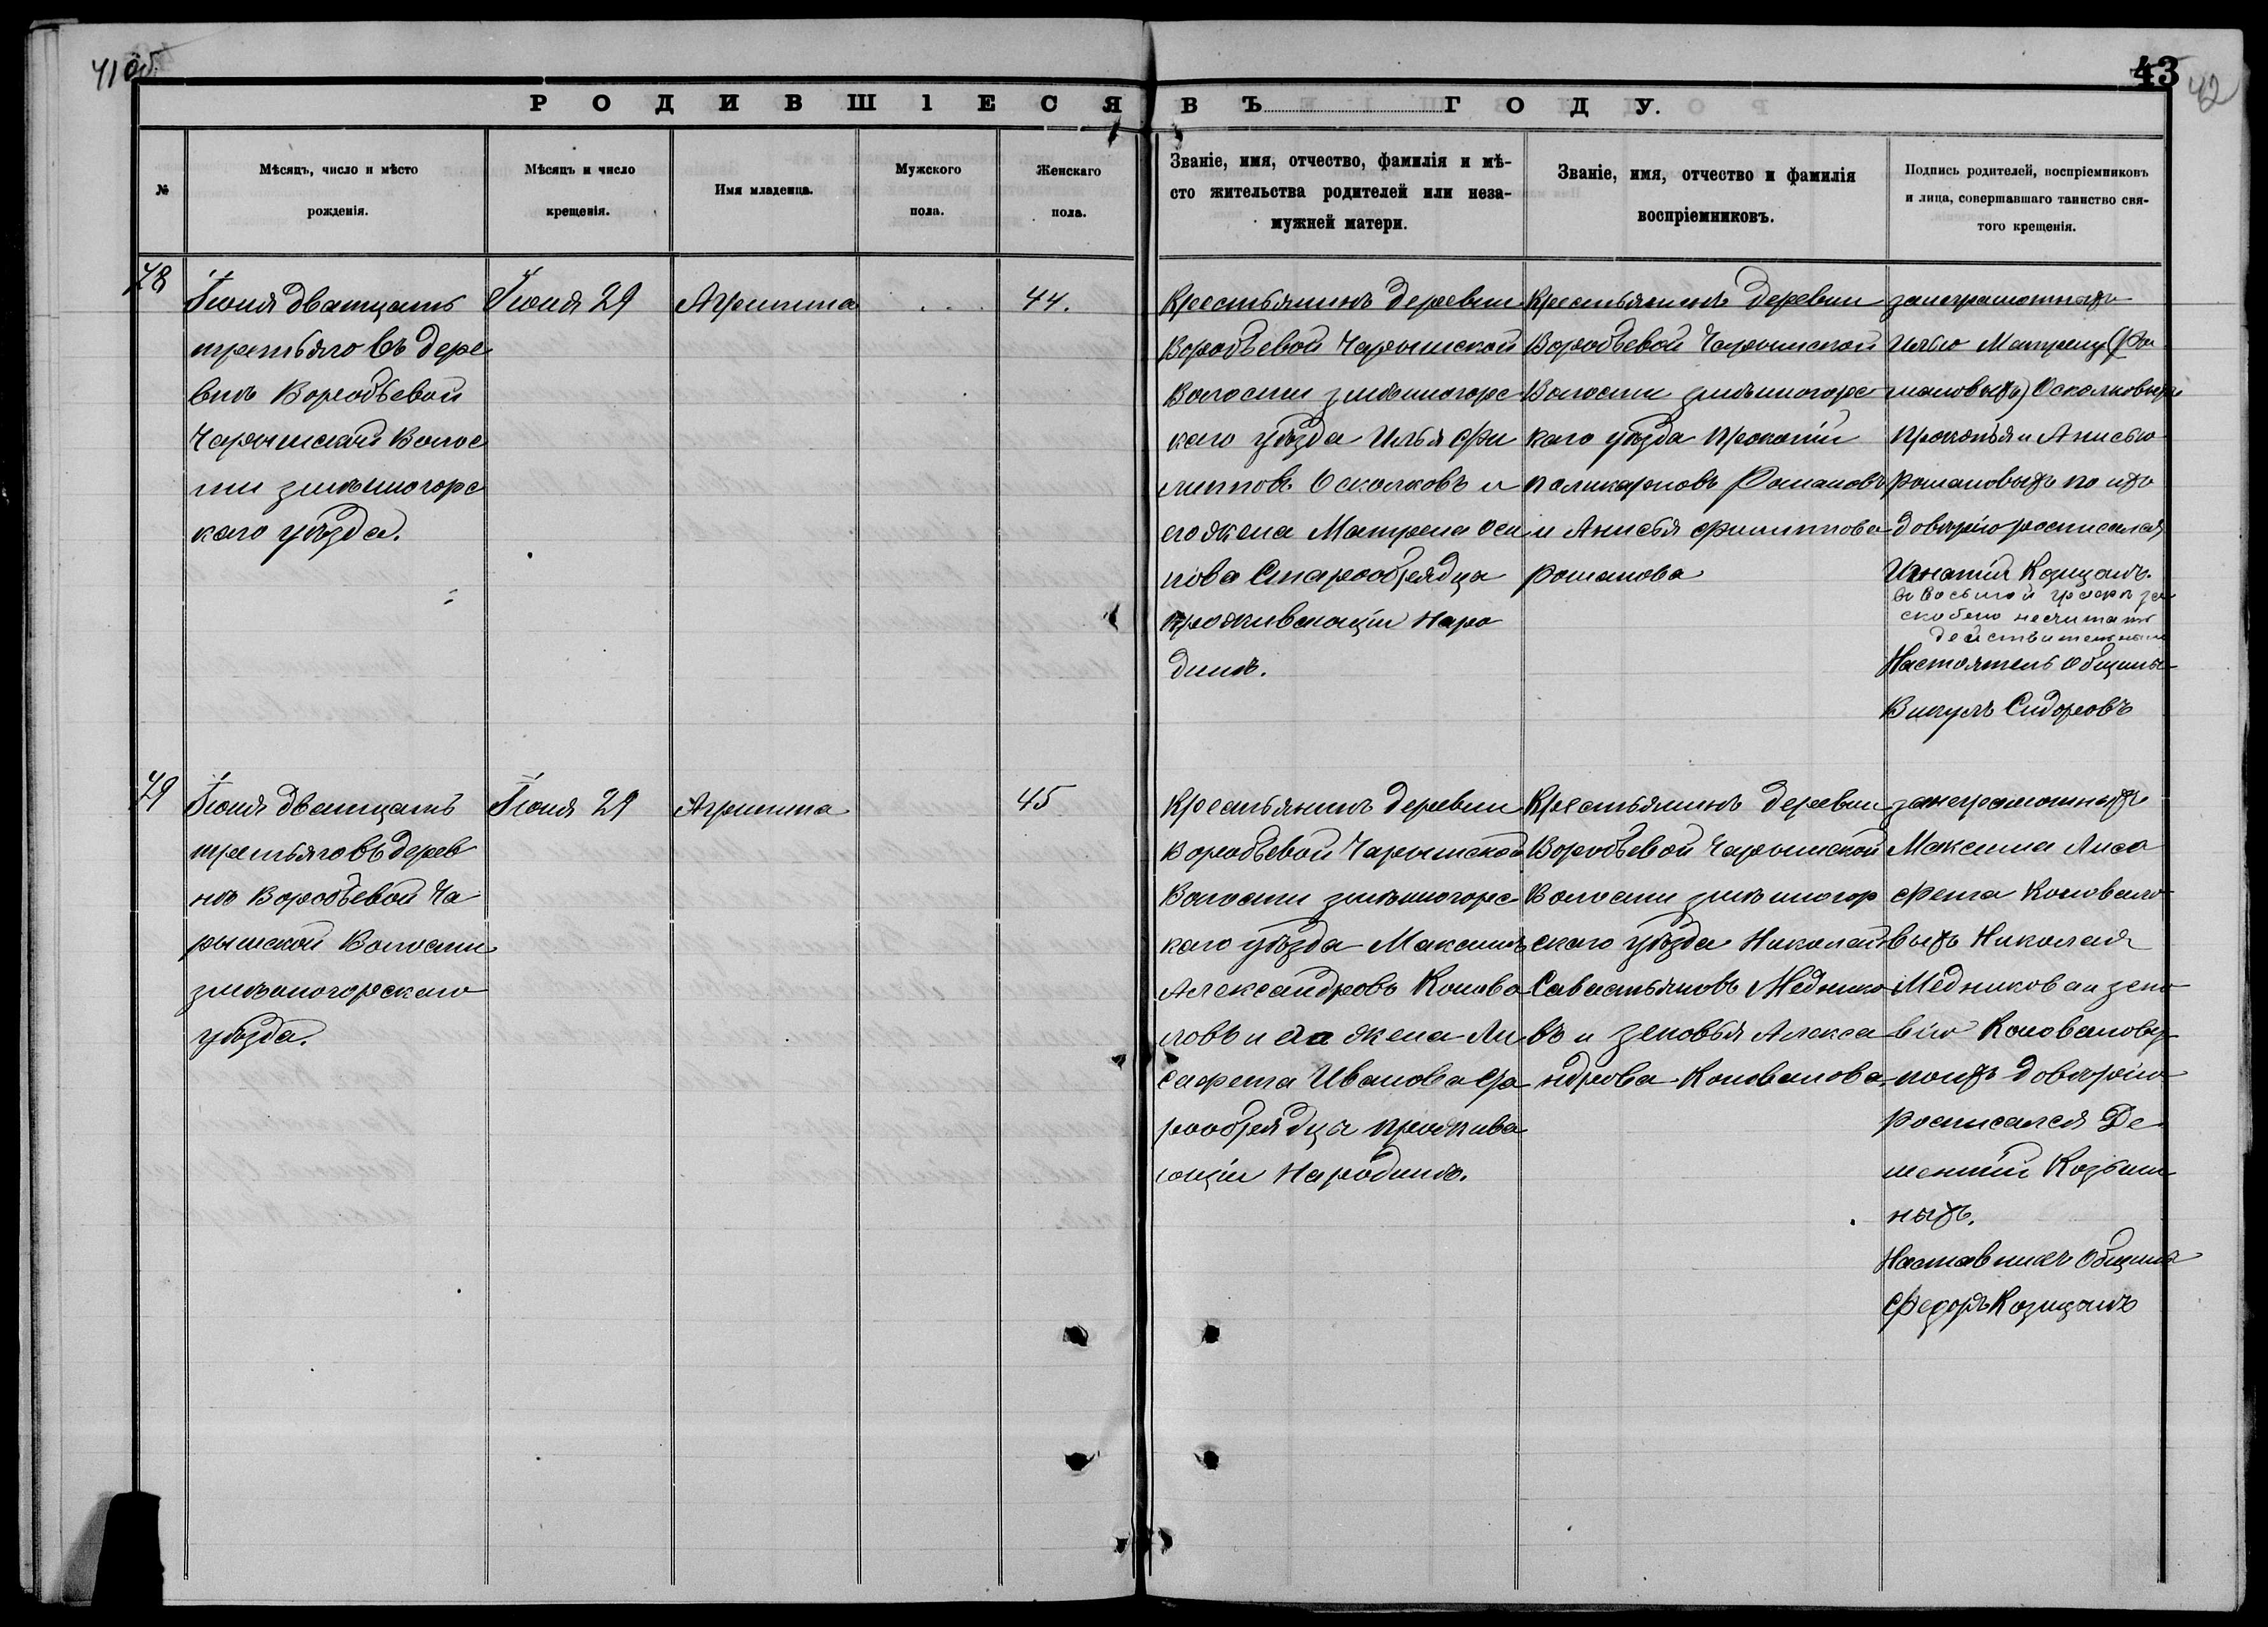 41 об.
43
42
РОДИВШІЕСЯ ВЪ ГОДУ.
№
Мѣсяцъ, число и мѣсто
рожденія.
Мѣсяцъ и число
крещенія.
Имя младенца.
Мужского
пола.
Женскаго
пола.
Званіе, имя, отчество, фамилія и мѣ-
сто жительства родителей или неза-
мужней матери.
Званіе, имя, отчество и фамилія
воспріемниковъ.
Подпись родителей, воспріемниковъ
и лица, совершавшаго таинство свя-
того крещенія.
78
Іюня двацать
третьяго въ дере
внѣ Воробьевой
Чарышской Волос
ти змѣиногорс
каго уѣзда.
Іюня 29
Агрипина
44.
Крестьянинъ деревни
Воробьевой Чарышской
Волости змѣиногорс
каго уѣзда Илья Фи
липповъ Осколковъ и
его жена Матрена Оси
пова Старообрядца
проживающіи Наро
динѣ.
Крестьянинъ деревни
Воробьевой Чарышской
Волости змѣиногорс
каго уѣзда Прокопій
Поликарповъ Романовъ
и Анисья Филиппова
Романова
занеграмотныхъ
Илью Матрену (Ро
мановыхъ) Осколковыхъ
Прокопья и Анисью
Романовыхъ по ихъ
довѣрію росписался
Игнатій Козицынъ.
въ восьмой графѣ за
скобено несчитать
действительным
Настоятель Общины
Викулъ Сидоровъ
79
Іюня двацать
третьяго въ дерев
нѣ Воробьевой Ча
рышской Волости
змѣиногорскаго
уѣзда.
Іюня 29
Агрипина
45
Крестьянинъ деревни
Воробьевой Чарышской
Волости змѣиногорс
каго уѣзда Максимъ
Александровъ Конова
ловъ и его жена Ли
сафета Иванова Ста
рообрядцы прожива
ющіи Народинѣ.
Крестьянинъ деревни
Воробьевой Чарышской
Волости змѣиногор
скаго уѣзда Николай
Савастьяновъ Меднико
въ и Зеновья Алекса
ндрова Коновалова
занеграмотныхъ
Максима Лиса
фета Коновало
выхъ Николая
Медникова и зено
вію Коновалову
поихъ довѣрію
росписался Де
ментій Козьми
ныхъ.
Наставникъ Общины
Федоръ Козицынъ